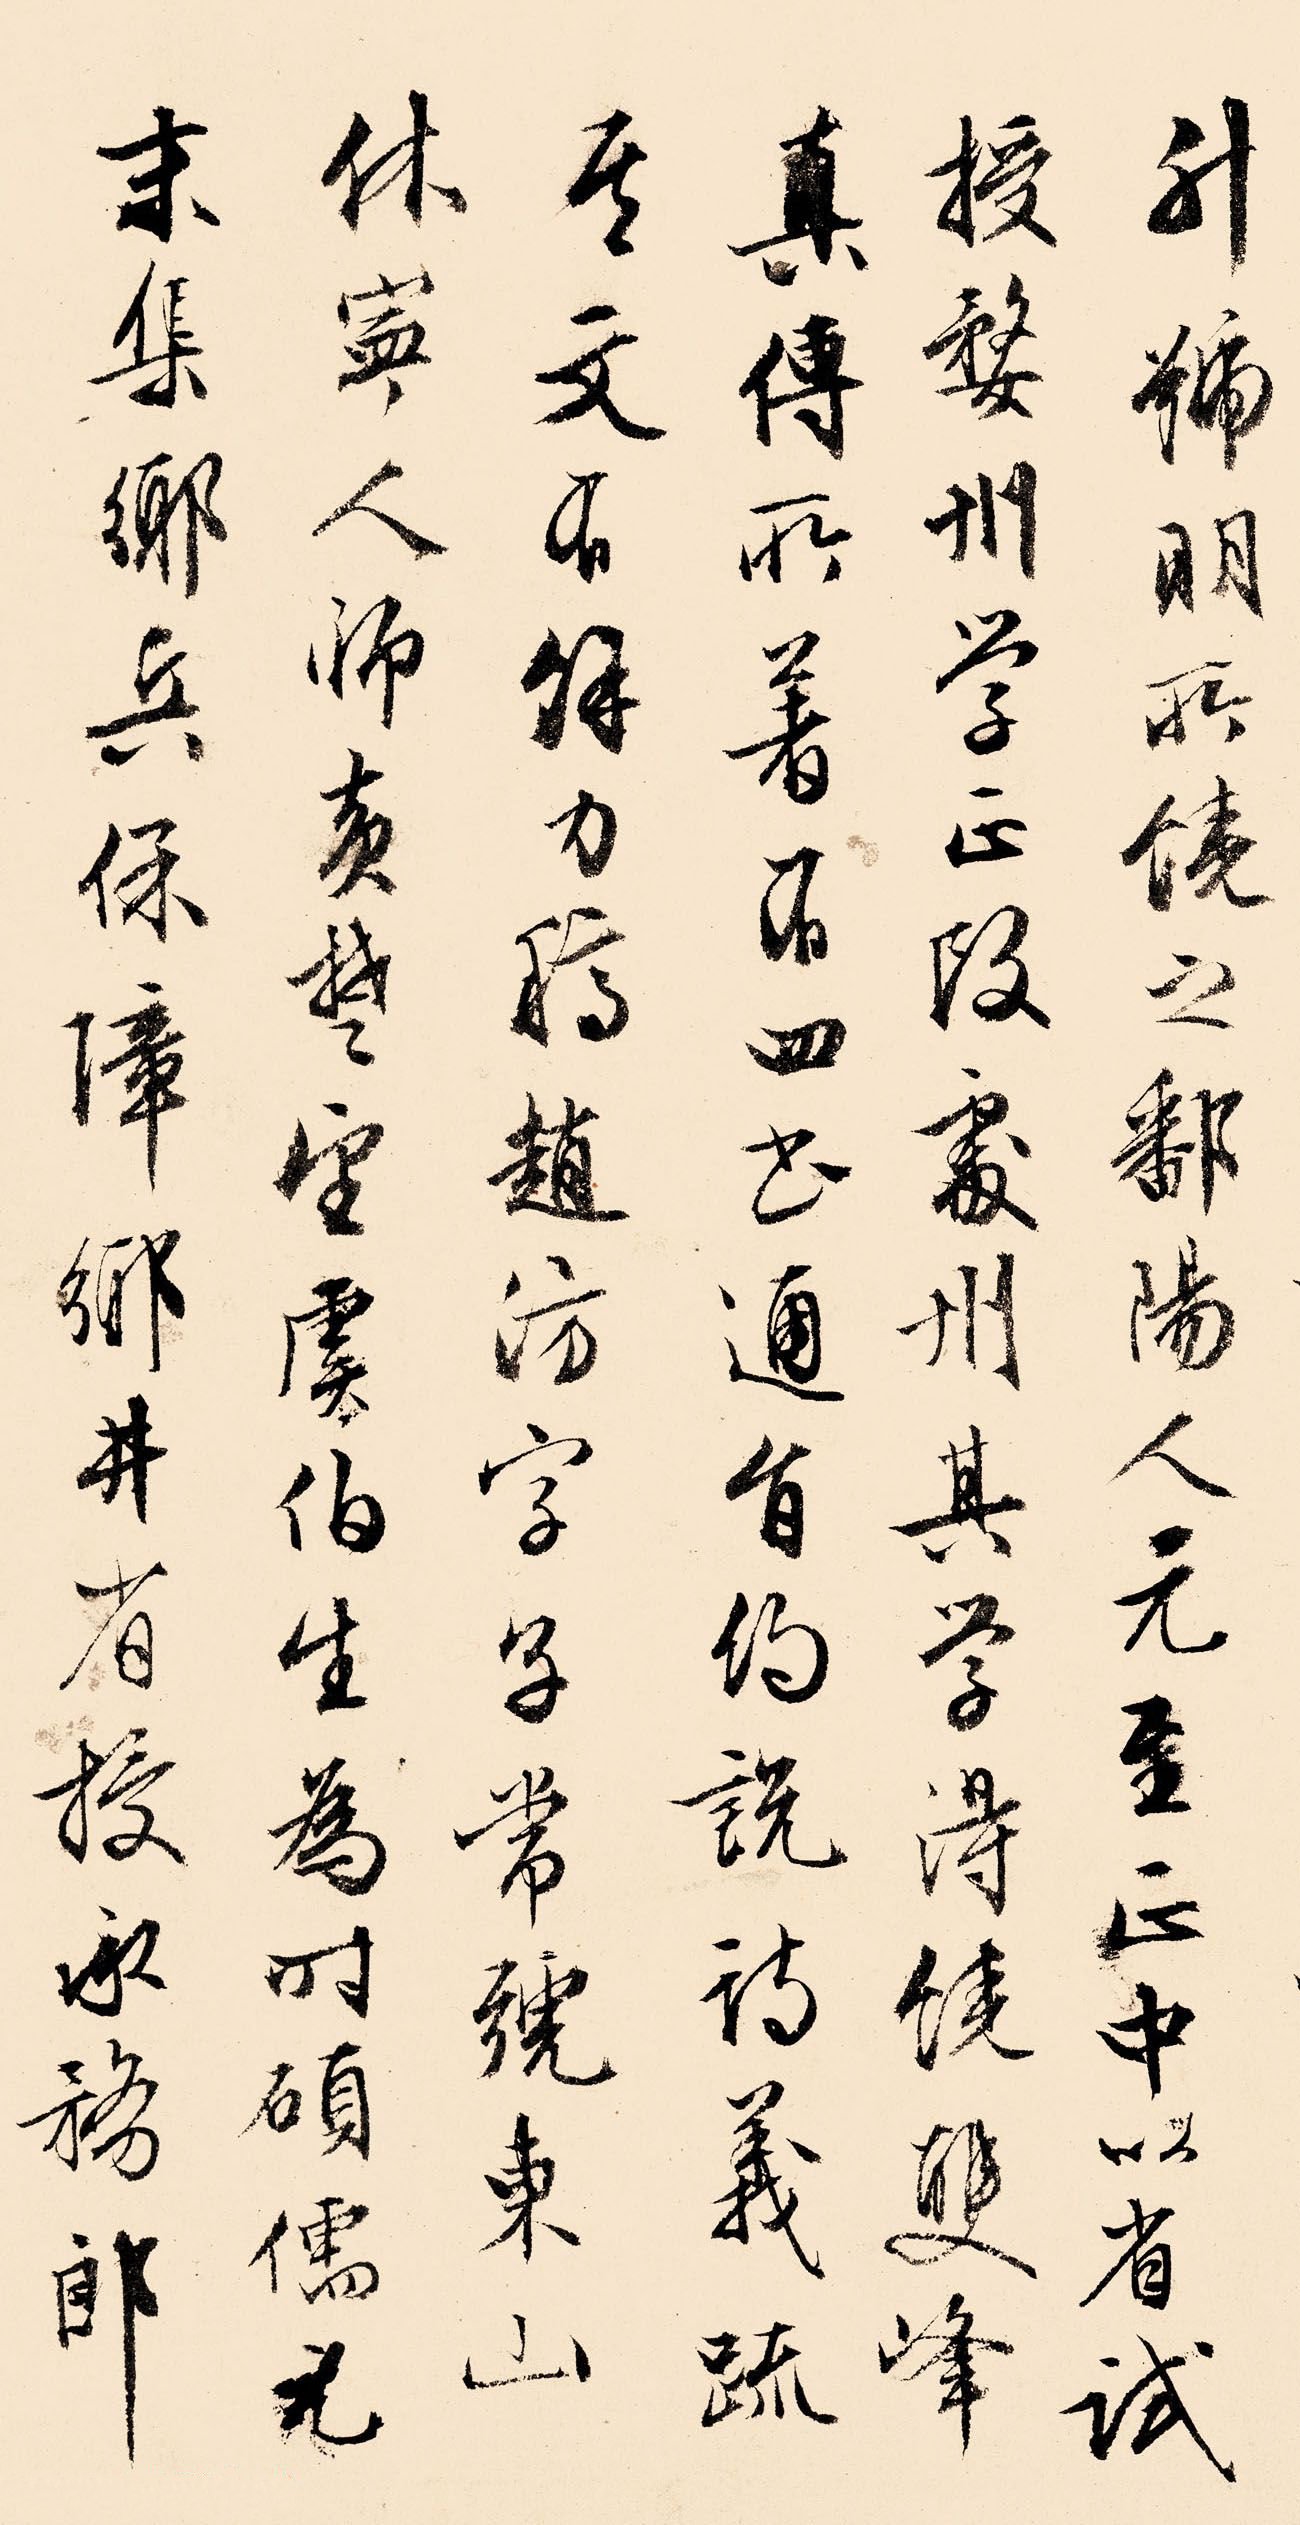 升號明所饒之鄱陽人元至正中以省試
授婺州学正改處州其学得饒雙峰
真傳所著有四书通旨約說詩義疏
其文有餘力稿趙汸字子常號東山
休寧人師黄楚望虞伯生為时碩儒元
末集鄉兵保障鄉井省授承務郎